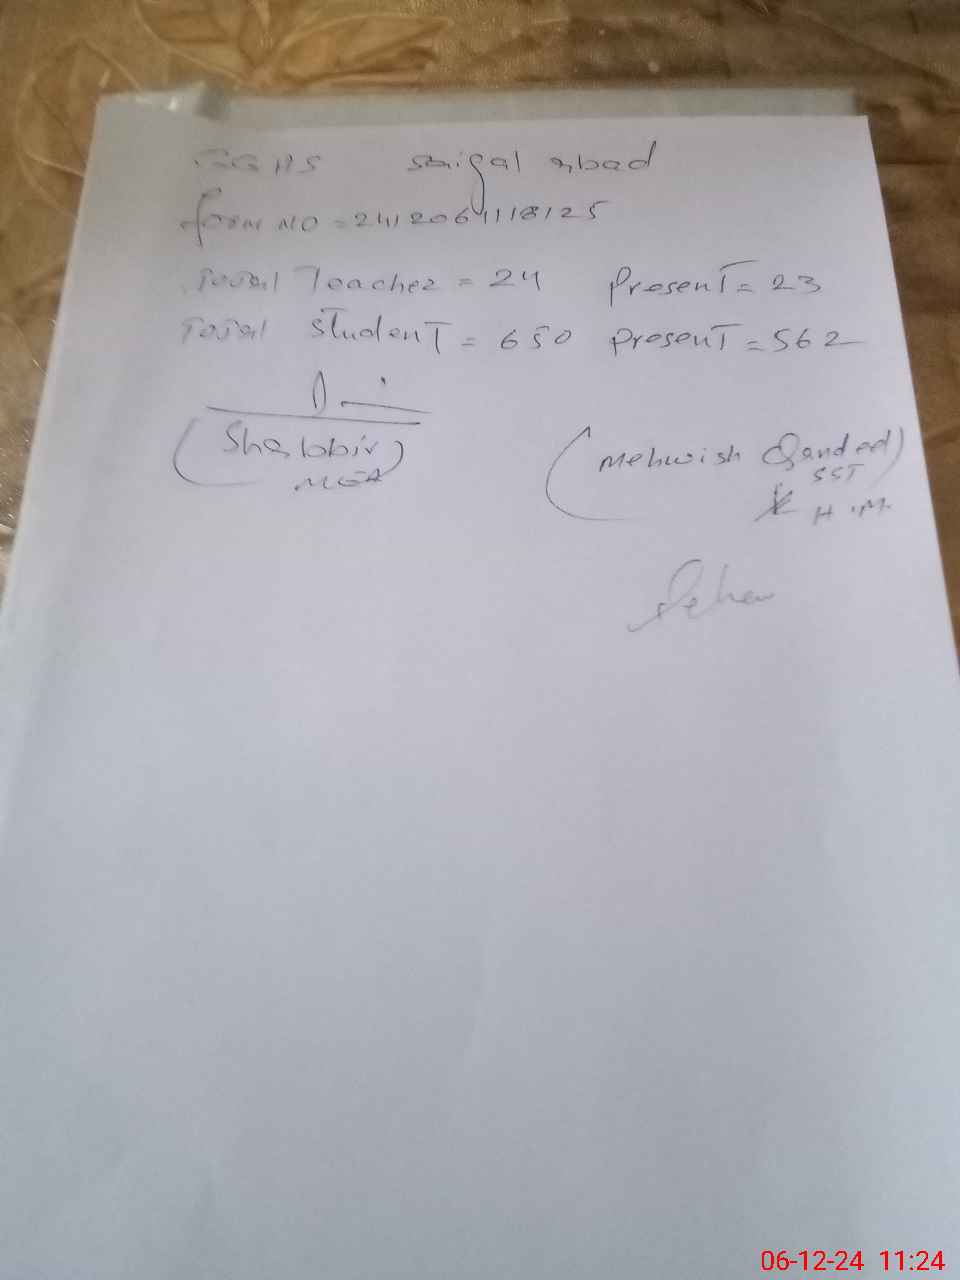 GGHS Saigal abad
form NO = 2412061118125
Total Teacher = 24 Present = 23
Total Student = 650 Present = 562
(Shabbir)
MEA
(Mehwish Qandeel)
SST
H.M.
06-12-24 11:24